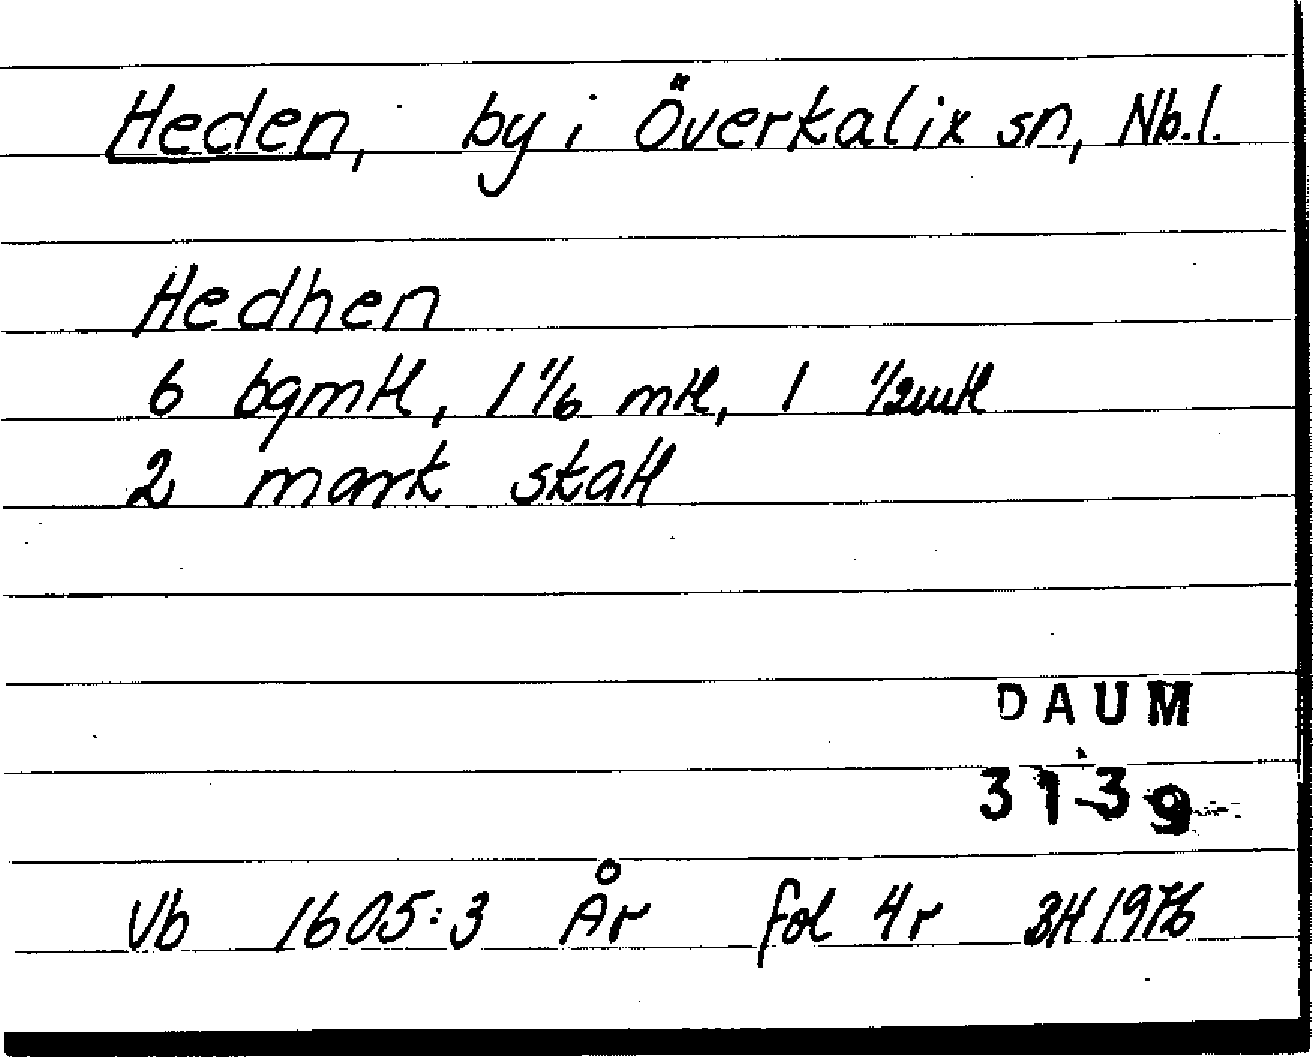 Heden, by i Överkalix sn, Nb.l.
Hedhen
6 bgmtl, 1 1/6 mtl, 1 1/2 mtl
2 mark skatt
DAUM
3139
Vb 1605:3 År fol 4r BH 1976